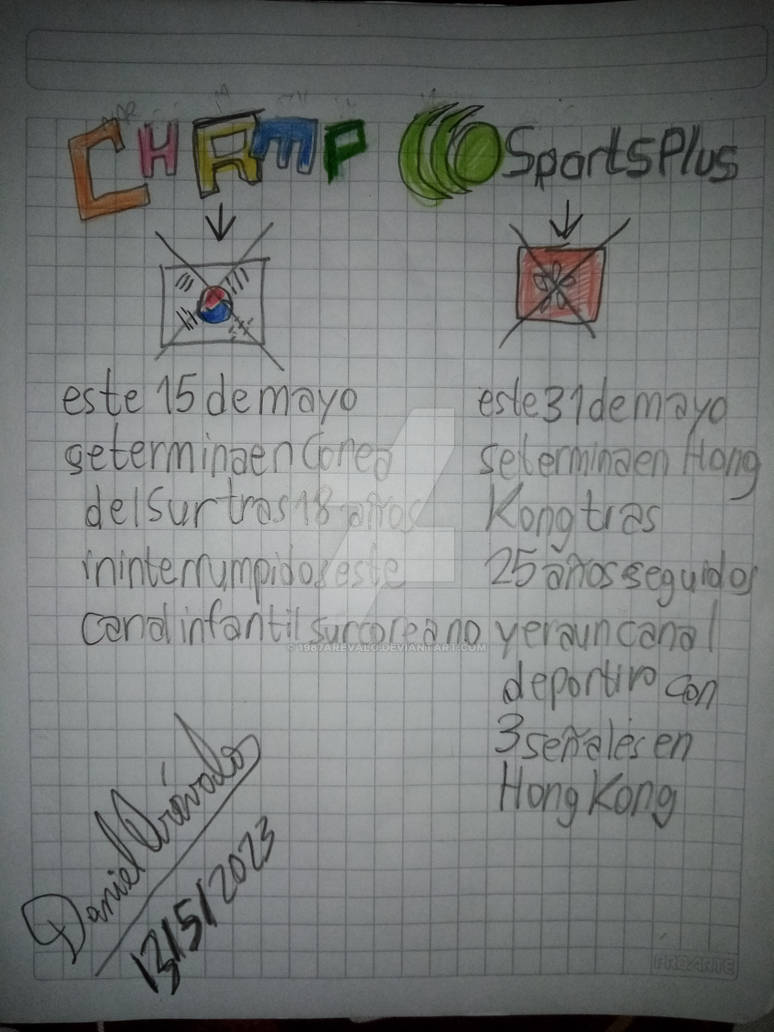 CHAMP
SportsPlus
este 15 de mayo
se termina en Corea
del Sur tras 18 años
ininterrumpidos este
canal infantil surcoreano
este 31 de mayo
se termina en Hong
Kong tras
25 años seguidos
y era un canal
deportivo con
3 señales en
Hong Kong
© 1987AREVALO.DEVIANTART.COM
Daniel Arévalo
13/5/2023
PROARTE